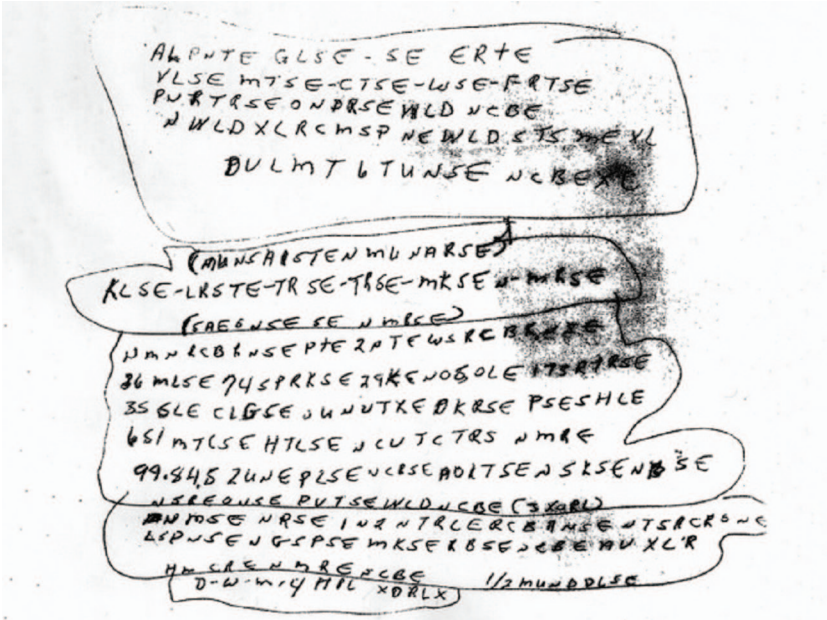 ALPNTE GLSE - SE ERTE
VLSE MTSE-CTSE-WSE-FRTSE
PNRTRSE ONDRSE WLD NCBE
NWLDXLRCMSP NEWLD STS ME XL
DULMT 6 TUNSE NCBE XE
(MUNSAISTEN MU NARSE)
KLSE-LRSTE-TRSE-TRSE-MKSEN-MRSE
(SAE6NSE SE NMRSE)
NMNRCBRNSE PTE 2NTEWSRCBRNSE
36 MLSE 74SPRKSE 29KENOSOLE 175RTRSE
35 GLE CLGSE UNUTXE DKRSE PSESHLE
651 MTCSE HTLSE NCUTCTRS NMRE
99.84.S 2UNEPLSE NCRSE AOLTSE NSKSEN SE
NSREONSE PVTSE WLD NCBE (3XORL)
NMSE NRSE IN2NTRLERCBRNSE NTSRCRBNE
LSPNSENGSPSE MKSERBSE NCBE AUXL'R
HMCRE NMRE NCBE
D-W-M-4 HPL XDRLX 1/2 MUNDDLSE